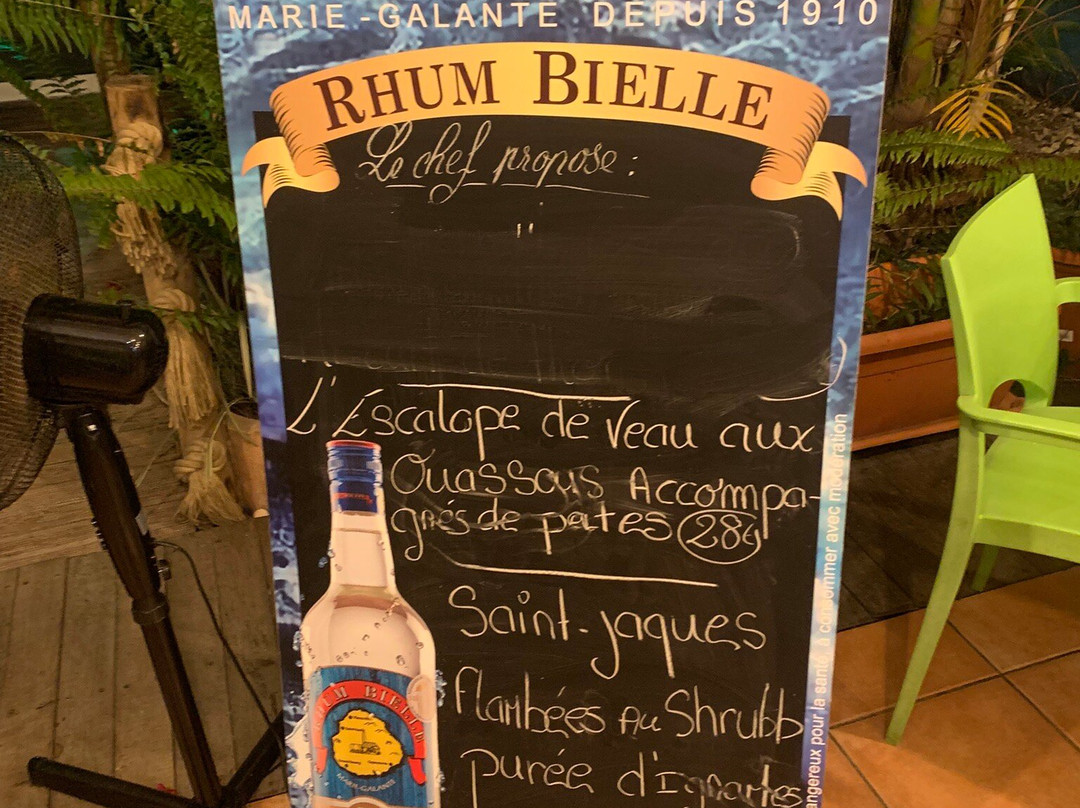 MARIE-GALANTE DEPUIS 1910
RHUM BIELLE
Le chef propose :
L'Escalope de Veau aux
Ouassous Accompa-
gnés de pates 28€
Saint-jaques
flambées Au Shrubb
purée d'Ignartes
RHUM BIELLE
MARIE-GALANTE
angereux pour la santé, à consommer avec modération